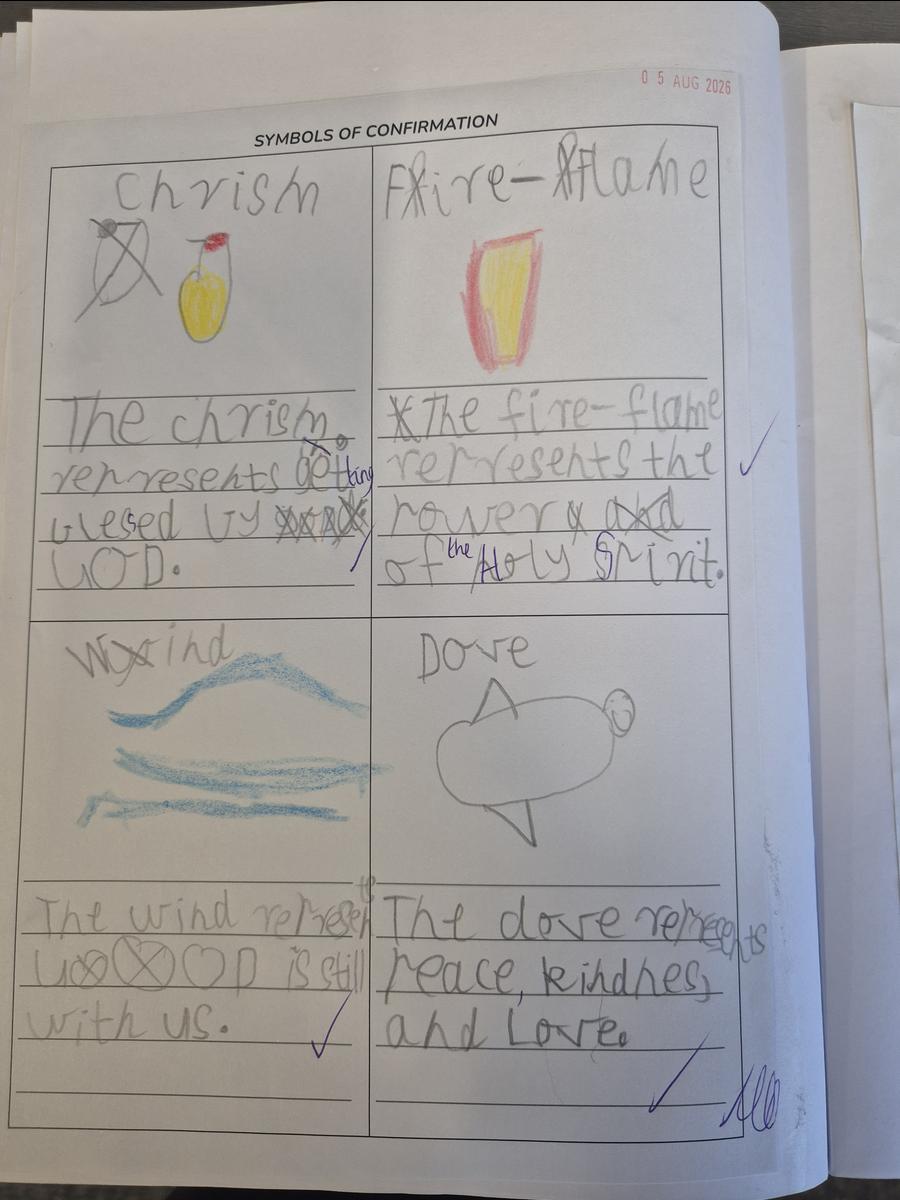 05 AUG 2026
SYMBOLS OF CONFIRMATION
Chrism
The chrism
represents getting
blessed by
GOD.
Fire-flame
The fire-flame
represents the
power
of the Holy Spirit.
Wind
The wind represents
GOD is still
with us.
Dove
The dove represents
peace, kindnes,
and Love.